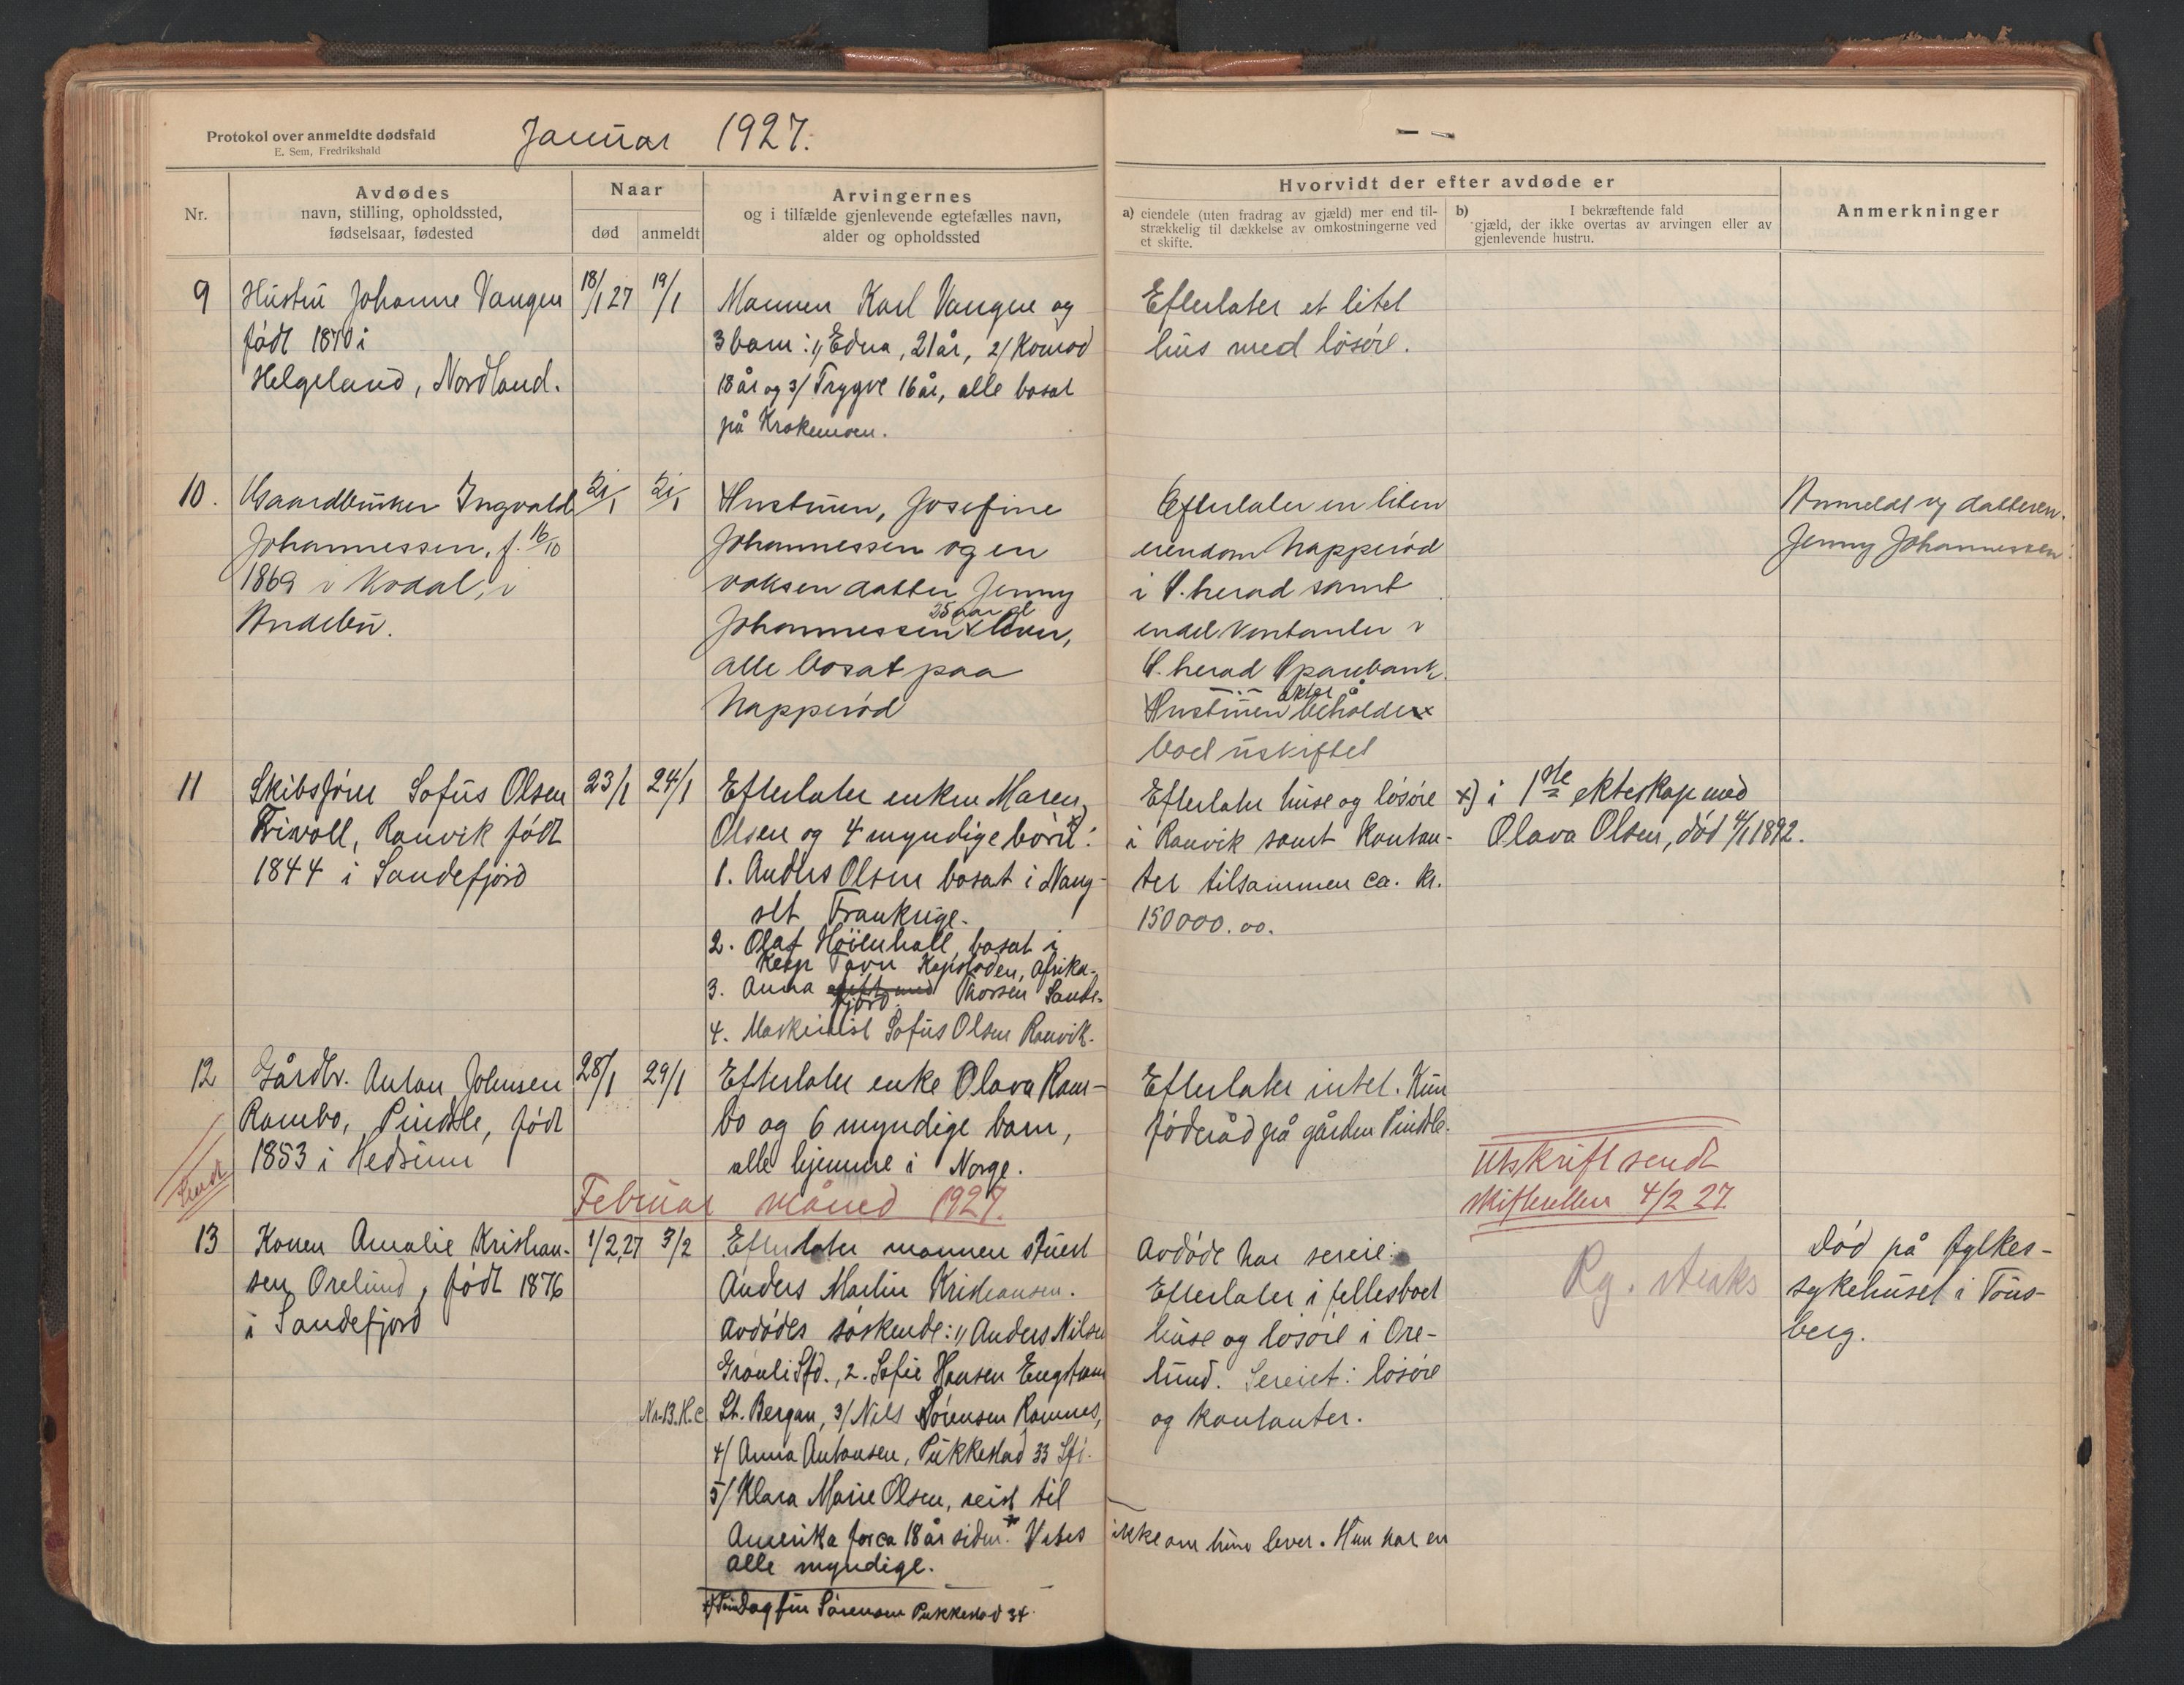 Protokol over anmeldte dødsfald
E. Sem, Fredrikshald
Januar 1927.
Nr.
Avdødes
navn, stilling, opholdssted,
fødselsaar, fødested
Naar
død
anmeldt
Arvingernes
og i tilfælde gjenlevende egtefælles navn,
alder og opholdssted
Hvorvidt der efter avdøde er
a) eiendele (uten fradrag av gjæld) mer end til-
strækkelig til dækkelse av omkostningerne ved
et skifte.
b) I bekræftende fald
gjæld, der ikke overtas av arvingen eller av
gjenlevende hustru.
Anmerkninger
9
Hustru Johanne Vangen
født 1870 i
Helgeland, Nordland.
18/1 27
19/1
Mannen Karl Vangen og
3 barn: 1/ Edna, 21 år, 2/ Konrad
18 år og 3/ Trygve 16 år, alle bosat
på Krokemoen.
Efterlater et litet
hus med løsøre.
10.
Gaardbruker Ingvald
Johannessen, f. 16/10
1869 i Kodal, i
Andebu.
21/1
21/1
Hustruen, Josefine
Johannessen og en
voksen datter Jenny
25 aar gl
Johannessen lever,
alle bosat paa
Napperød
Efterlater en liten
eiendom Napperød
i S. herad samt
endel kontanter i
S. herad Sparebank.
ønsker å
Hustruen beholder
boet uskiftet
Anmeldt av datteren.
Jenny Johannessen.
11
Skibsfører Sofus Olsen
Trivoll, Ranvik født
1844 i Sandefjord
23/1
24/1
Efterlater enken Maren
Olsen og 4 myndige børn x):
1. Anders Olsen bosat i
Frankrige.
2. Olaf Høienhall, bosat i
Keep Town Kapstaden, Afrika.
3. Anna gift med Thorsen Sande-
fjord.
4. Maskinist Sofus Olsen Ranvik.
Efterlater huse og løsøre
i Ranvik samt kontan-
ter tilsammen ca. kr.
150000.00.
x) i 1ste ekteskap med
Olava Olsen, død 4/1 1892.
12
Gårdbr. Anton Johnsen
Rambo, Pindsle, født
1853 i Hedrum
28/1
29/1
Efterlater enke Olava Ram-
bo og 6 myndige barn,
alle hjemme i Norge.
Efterlater intet. Kun
føderåd på gården Pindsle.
Utskrift sendt
skifteretten 4/2 27.
Sendt
Februar måned 1927.
13
Konen Amalie Kristian-
sen Orelund, født 1876
i Sandefjord
1/2 27
3/2
Efterlater mannen stuert
Anders Martin Kristiansen.
Avdødes søskende: 1/ Anders Nilsen
Granli Sfd., 2. Sofie Hansen Engstrøm
Nr. 13. H.c
St. Bergan, 3/ Nils Sørensen Ramnes,
4/ Anna Antonsen, Pukkestad 33 Sfj.
5/ Klara Marie Olsen, reist til
Amerika for ca 18 år siden. x Vites
ikke om hun lever. Hun har en
alle myndige.
x) Sørensen Pukkestad 34.
Avdøde har særeie.
Efterlater i fellesboet
huse og løsøre i Ore-
lund. Særeiet: løsøre
og kontanter.
Rg. straks
Død på fylkes-
sykehuset i Tøns-
berg.